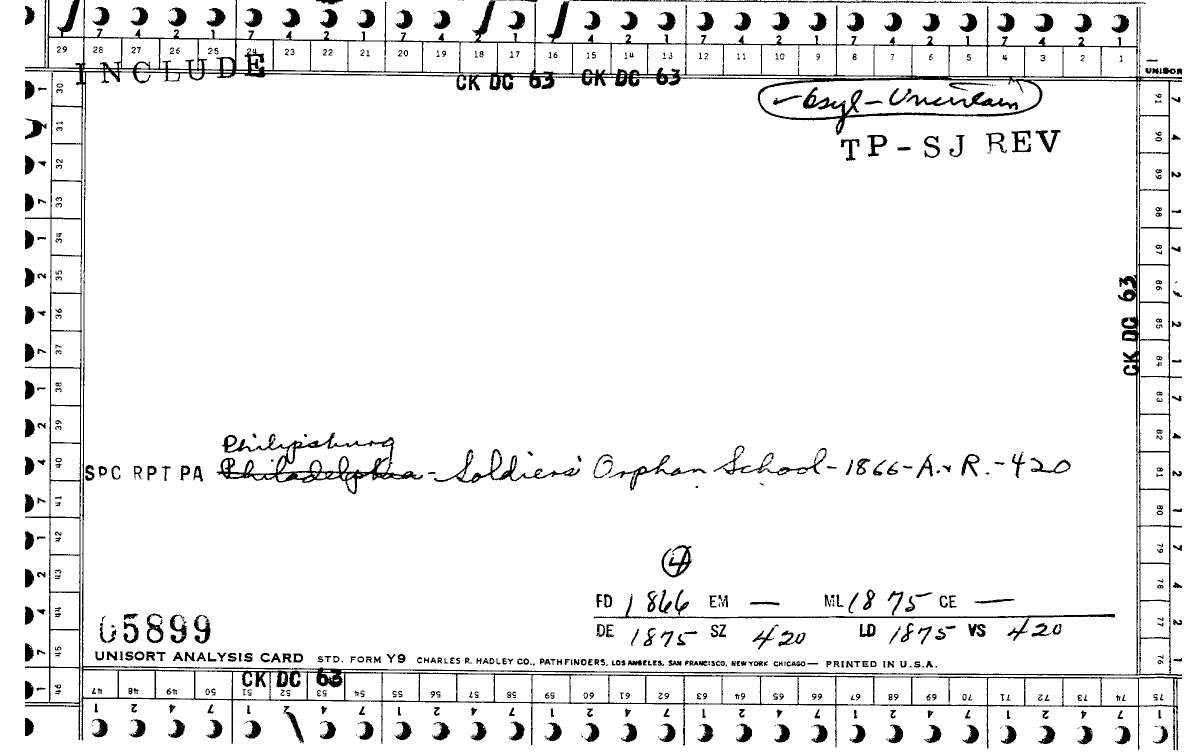 7 4 2 1 7 4 2 1 7 4 2 1 4 2 1 7 4 2 1 7 4 2 1 7 4 2 1
29 28 27 26 25 24 23 22 21 20 19 18 17 16 15 14 13 12 11 10 9 8 7 6 5 4 3 2 1
INCLUDE
CK DC 63 CK DC 63
UNISOR
TP-SJ REV
30 31 32 33 34 35 36 37 38 39 40 41 42 43 44 45 46
91 90 89 88 87 86 85 84 83 82 81 80 79 78 77 76
CK DC 63
Philipsburg
SPC RPT PA Philadelphia - Soldiers' Orphan School - 1866 - A. & R. - 420
4
FD 1866 EM — ML 1875 CE —
DE 1875 SZ 420 LD 1875 VS 420
05899
UNISORT ANALYSIS CARD STD. FORM Y9 CHARLES R. HADLEY CO., PATHFINDERS, LOS ANGELES, SAN FRANCISCO, NEW YORK CHICAGO — PRINTED IN U.S.A.
CK DC 63
47 48 49 50 51 52 53 54 55 56 57 58 59 60 61 62 63 64 65 66 67 68 69 70 71 72 73 74 75
1 2 4 7 1 2 4 7 1 2 4 7 1 2 4 7 1 2 4 7 1 2 4 7 1 2 4 7 1